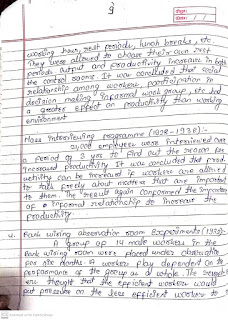 working hour, rest periods, lunch breaks, etc
They were allowed to choose their own rest
periods output and productivity increase in both
the control rooms. It was concluded that social
relationship among workers, participation in
decision making, informal work group, etc. had
a greater effect on productivity than working
environment
Mass Interviewing programme (1928-1930):-
21,000 employees were interviewed over
a period of 3 yrs to find out the reason for
increased productivity. It was concluded that prod
activity can be increased if workers are allowed
to talk freely about matters that are important
to them. The results again confirmed the importan
of informal relationship to increase the
productivity.
4. Bank wiring observation room Experiments (1932):-
A group of 14 male workers in the
Bank wiring room were placed under observation
for six months. A worker's pay depended on the
performance of the group as a whole. The research
ers thought that the efficient workers would
put pressure on the less efficient workers to